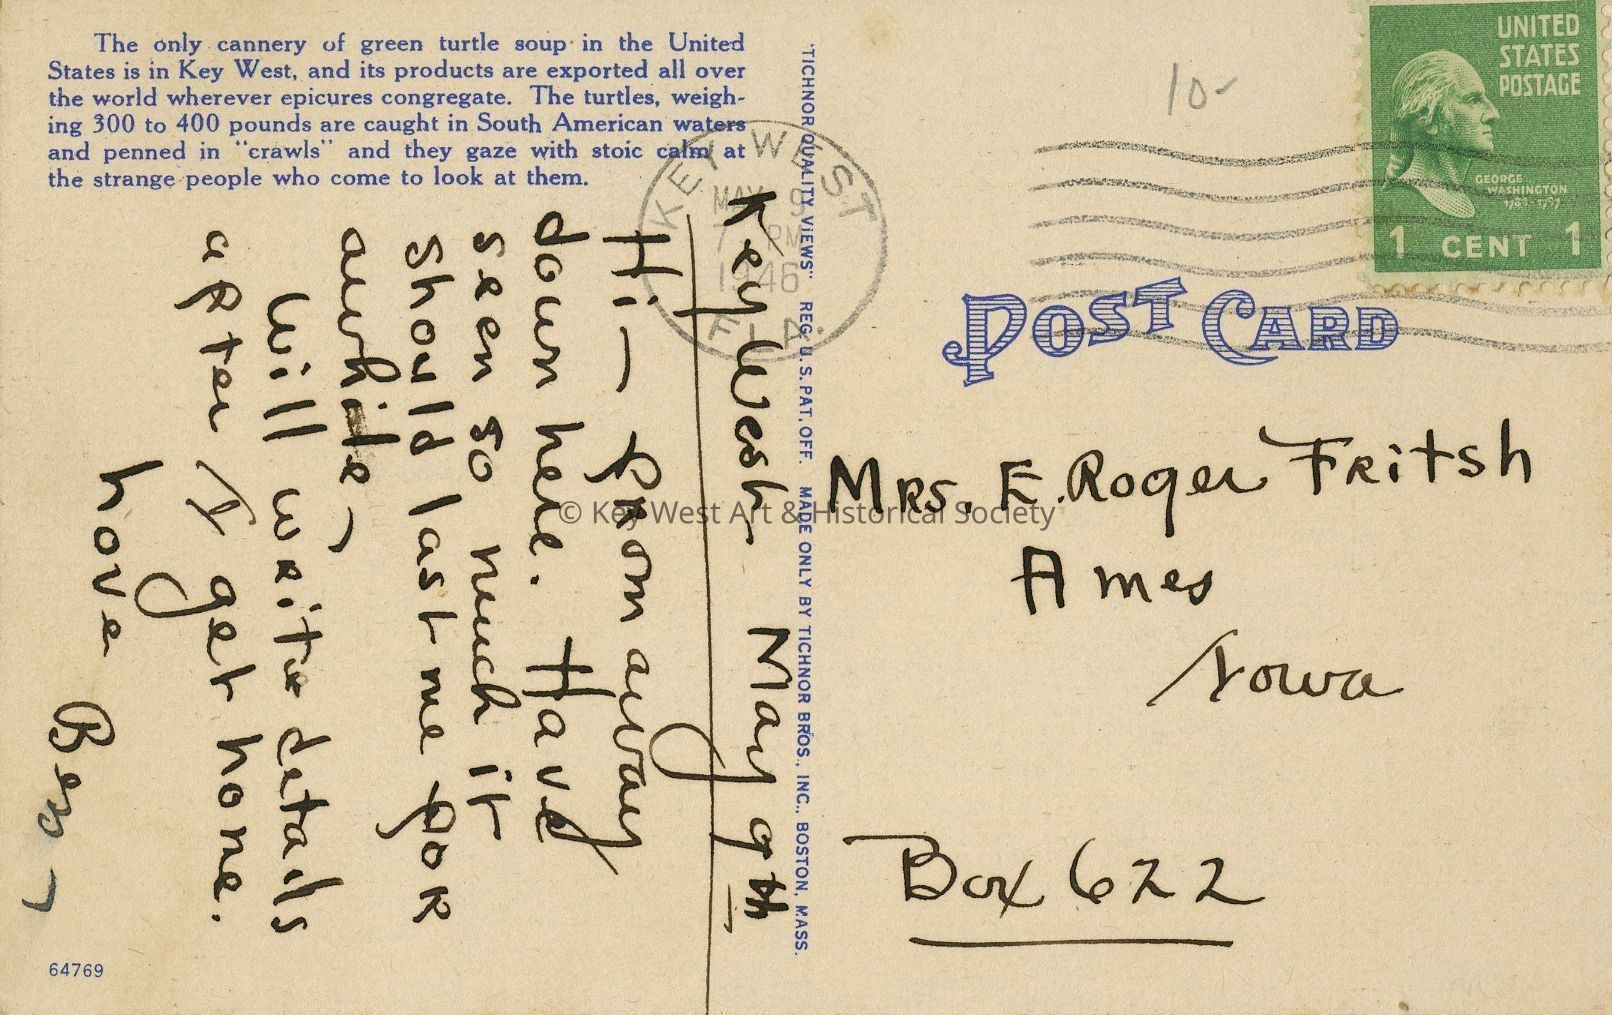 The only cannery of green turtle soup in the United
States is in Key West, and its products are exported all over
the world wherever epicures congregate. The turtles, weigh-
ing 300 to 400 pounds are caught in South American waters
and penned in "crawls" and they gaze with stoic calm at
the strange people who come to look at them.
Key West May 9th
Hi — From away
down here. Have
seen so much it
should last me for
awhile,
Will write details
after I get home.
Love
Bess
64769
"TICHNOR QUALITY VIEWS" REG. U. S. PAT. OFF. MADE ONLY BY TICHNOR BROS., INC., BOSTON, MASS.
KEY WEST
MAY 9
7 PM
1946
FLA.
10-
UNITED
STATES
POSTAGE
GEORGE
WASHINGTON
1789-1797
1 CENT 1
POST CARD
Mrs. E. Roger Fritsh
Ames
Iowa
Box 622
© Key West Art & Historical Society